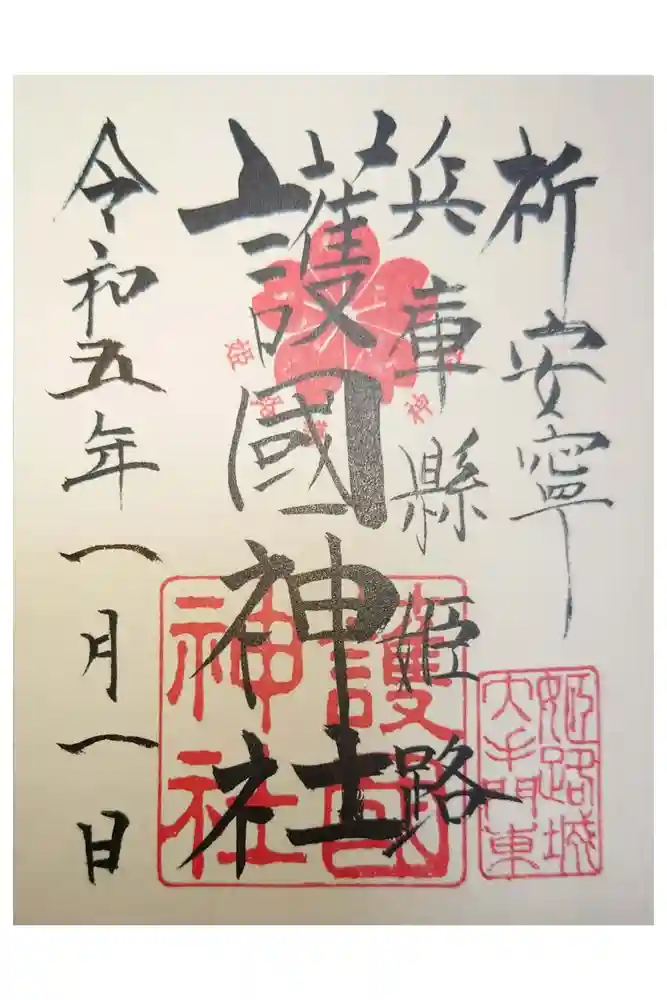 祈安寧
兵庫縣姫路
護國神社
令和五年一月一日
護国
神社
姫路城
大手門東